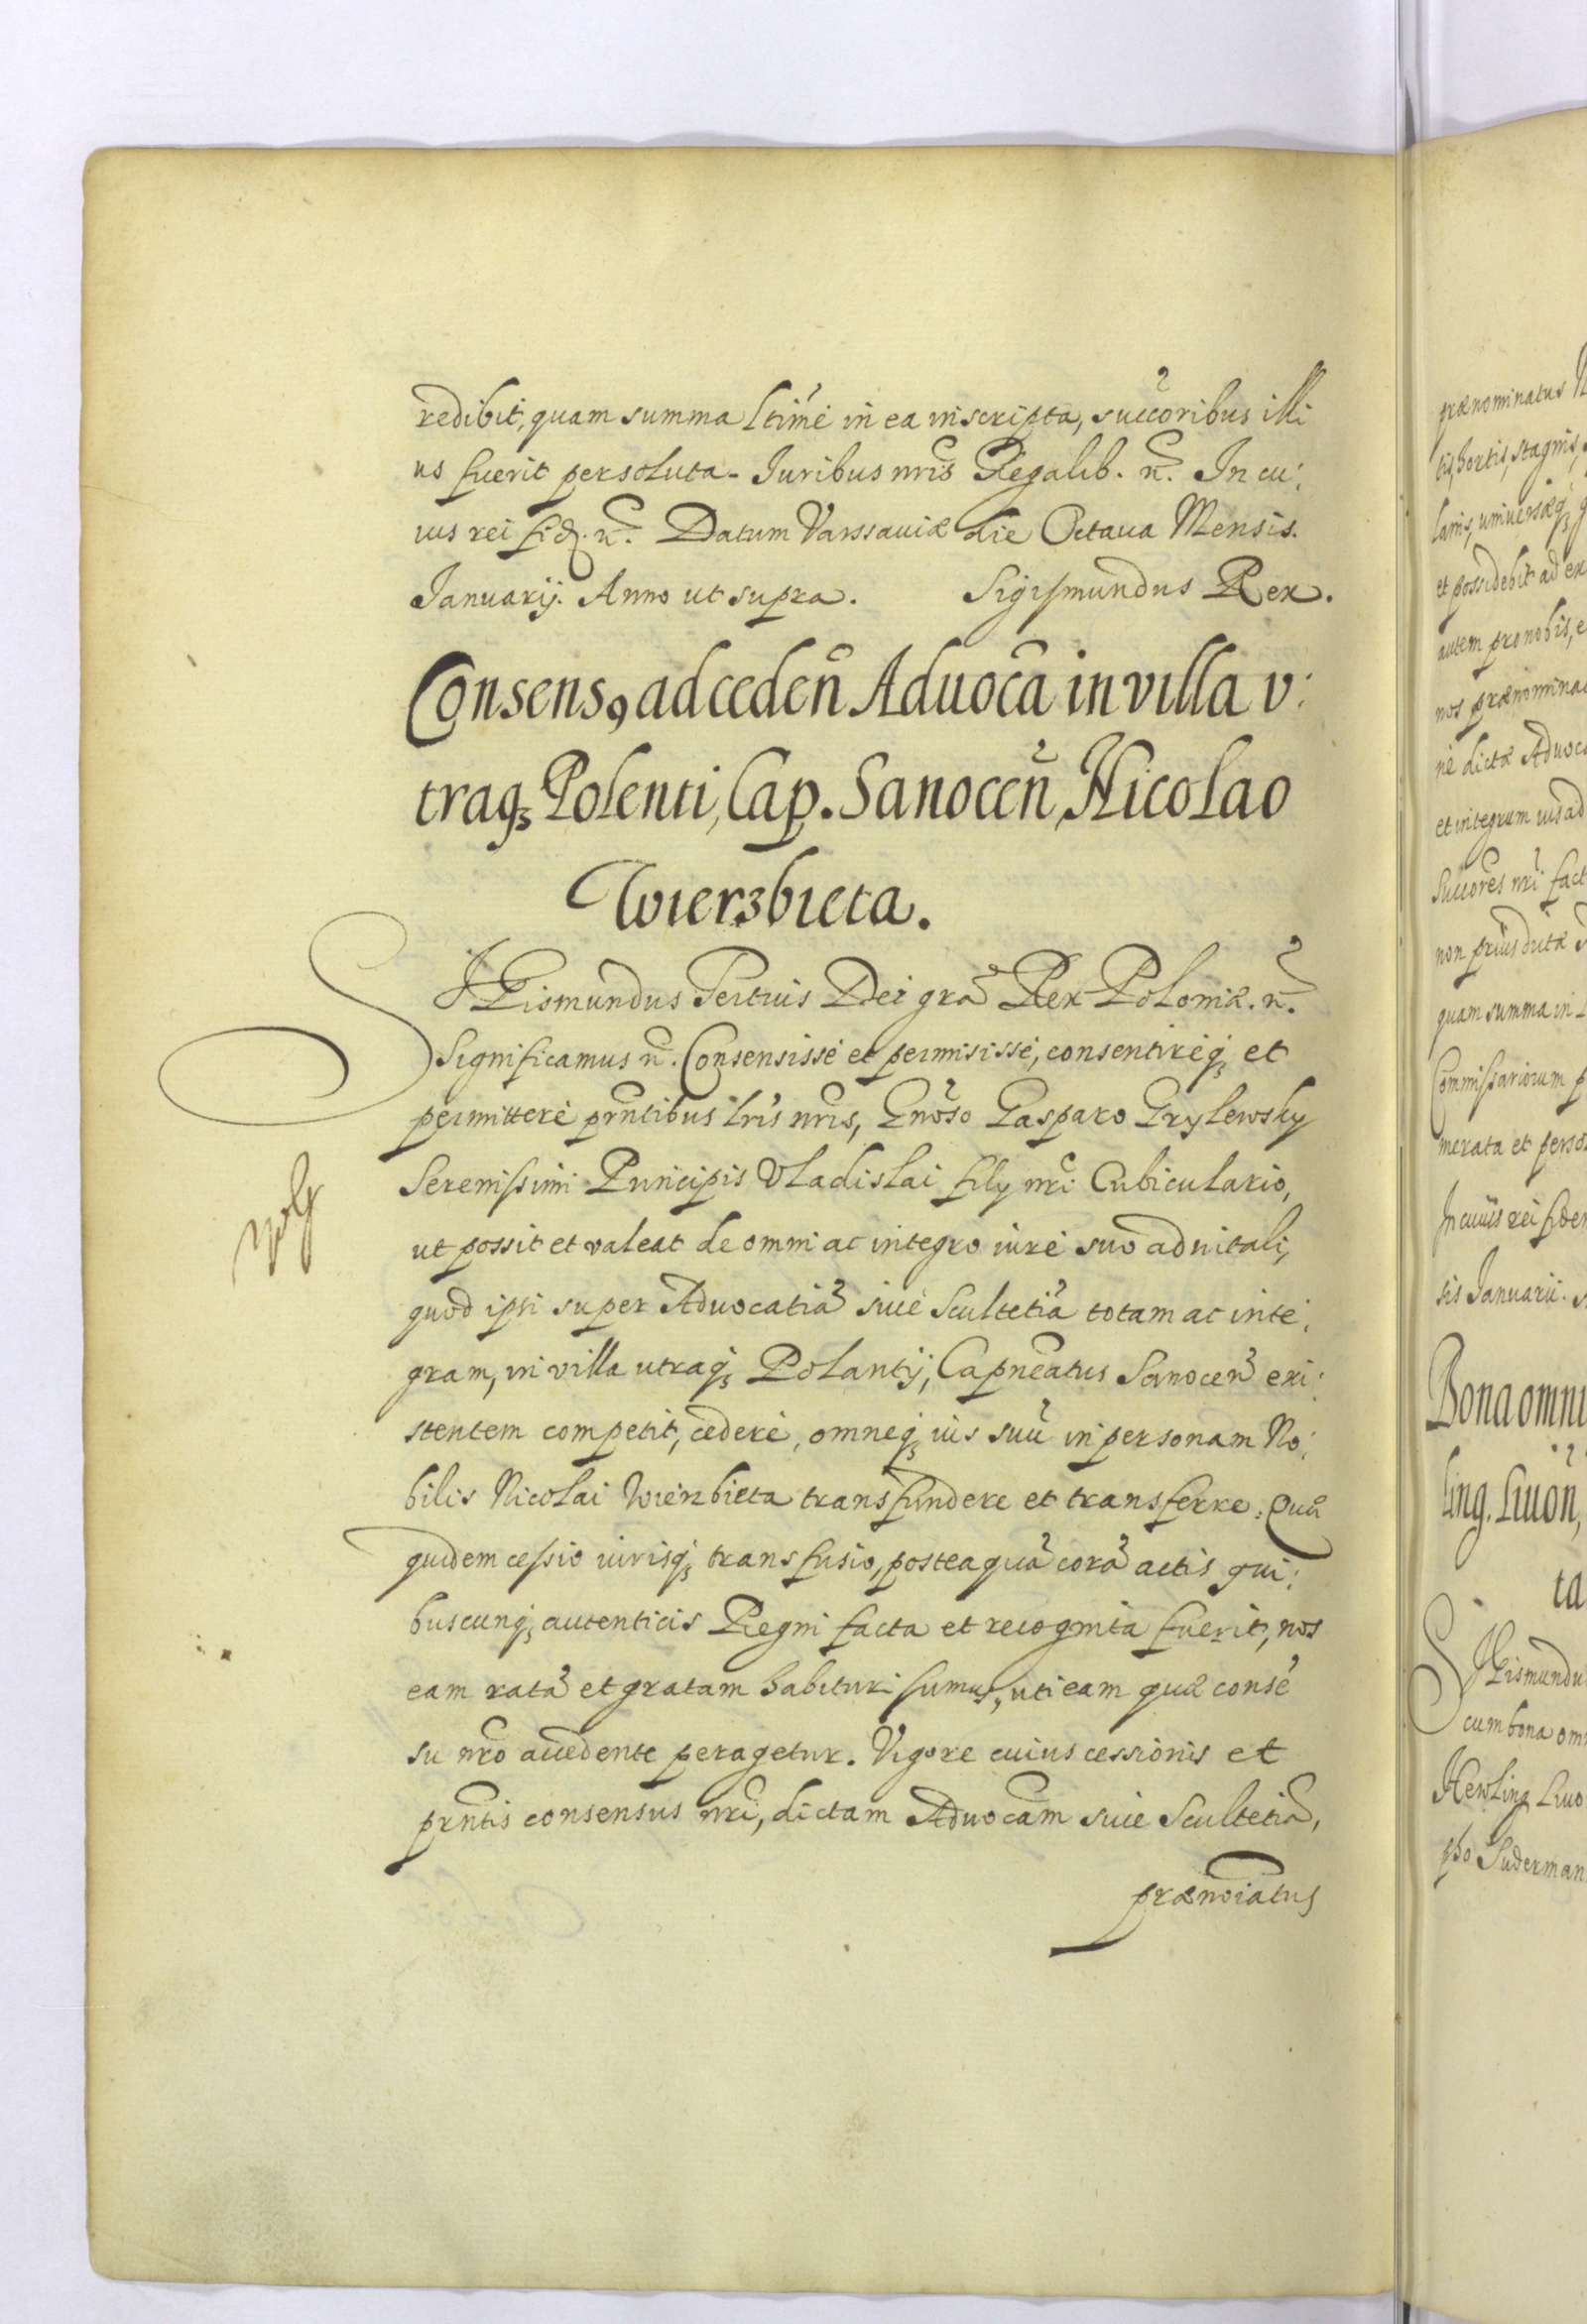 redibit, quam summa ltime in ea inscripta, succoribus illi
us fuerit persoluta. Iuribus nris Regalib. n. In cu:
ius rei fid. n. Datum Varssauiæ die Octaua Mensis.
Ianuarij. Anno ut supra. Sigismundus Rex.
Consens9 ad ceden Aduoca in villa v:
traq3 Polenti, Cap. Sanocen, Nicolao
Wierzbieta.
SIGismundus Tertius Dei gra Rex Poloniæ. n.
Significamus n. Consensisse et permisisse, consentireq3 et
permittere prntibus lris nris, Gnoso Gasparo Grylewsky
Serenissimi Principis Vladislai filij nri Cubiculario,
ut possit et valeat de omni ac integro iure suo aduitali,
quod ipsi super Aduocatiã siue Scultetiã totam ac inte:
gram, in villa utraq3 Polantij, Capneatus Sanocen exi:
stentem competit, cedere, omneq3 ius suũ in personam No:
bilis Nicolai Wierzbieta transfundere et transferre. Quæ
quidem cessio iurisq3 transfusio, posteaquã corã actis qui:
buscunq3 autenticis Regni facta et recognita fuerit, nos
eam ratã et gratam habituri sumus, uti eam quæ consẽ
su nro accedente peragetur. Vigore cuius cessionis et
prntis consensus nri, dictam Aduocam siue Scultetiã,
prænoiatus
prænominatus
tis, hortis, stagnis,
lanis, uniuersæq3
et possidebit ad ex
autem pro nobis, e
nos prænomina
ne dictæ Aduoc
et integrum ius ad
Succores nri fact
non prius dictæ
quam summa in
Commissariorum p
merata et perso
In cuius rei fidem
sis Ianuarii.
Bona omni
ling. Liuon,
ta
SIGismundu
cum bona om
Hewling Liuo
Suderman